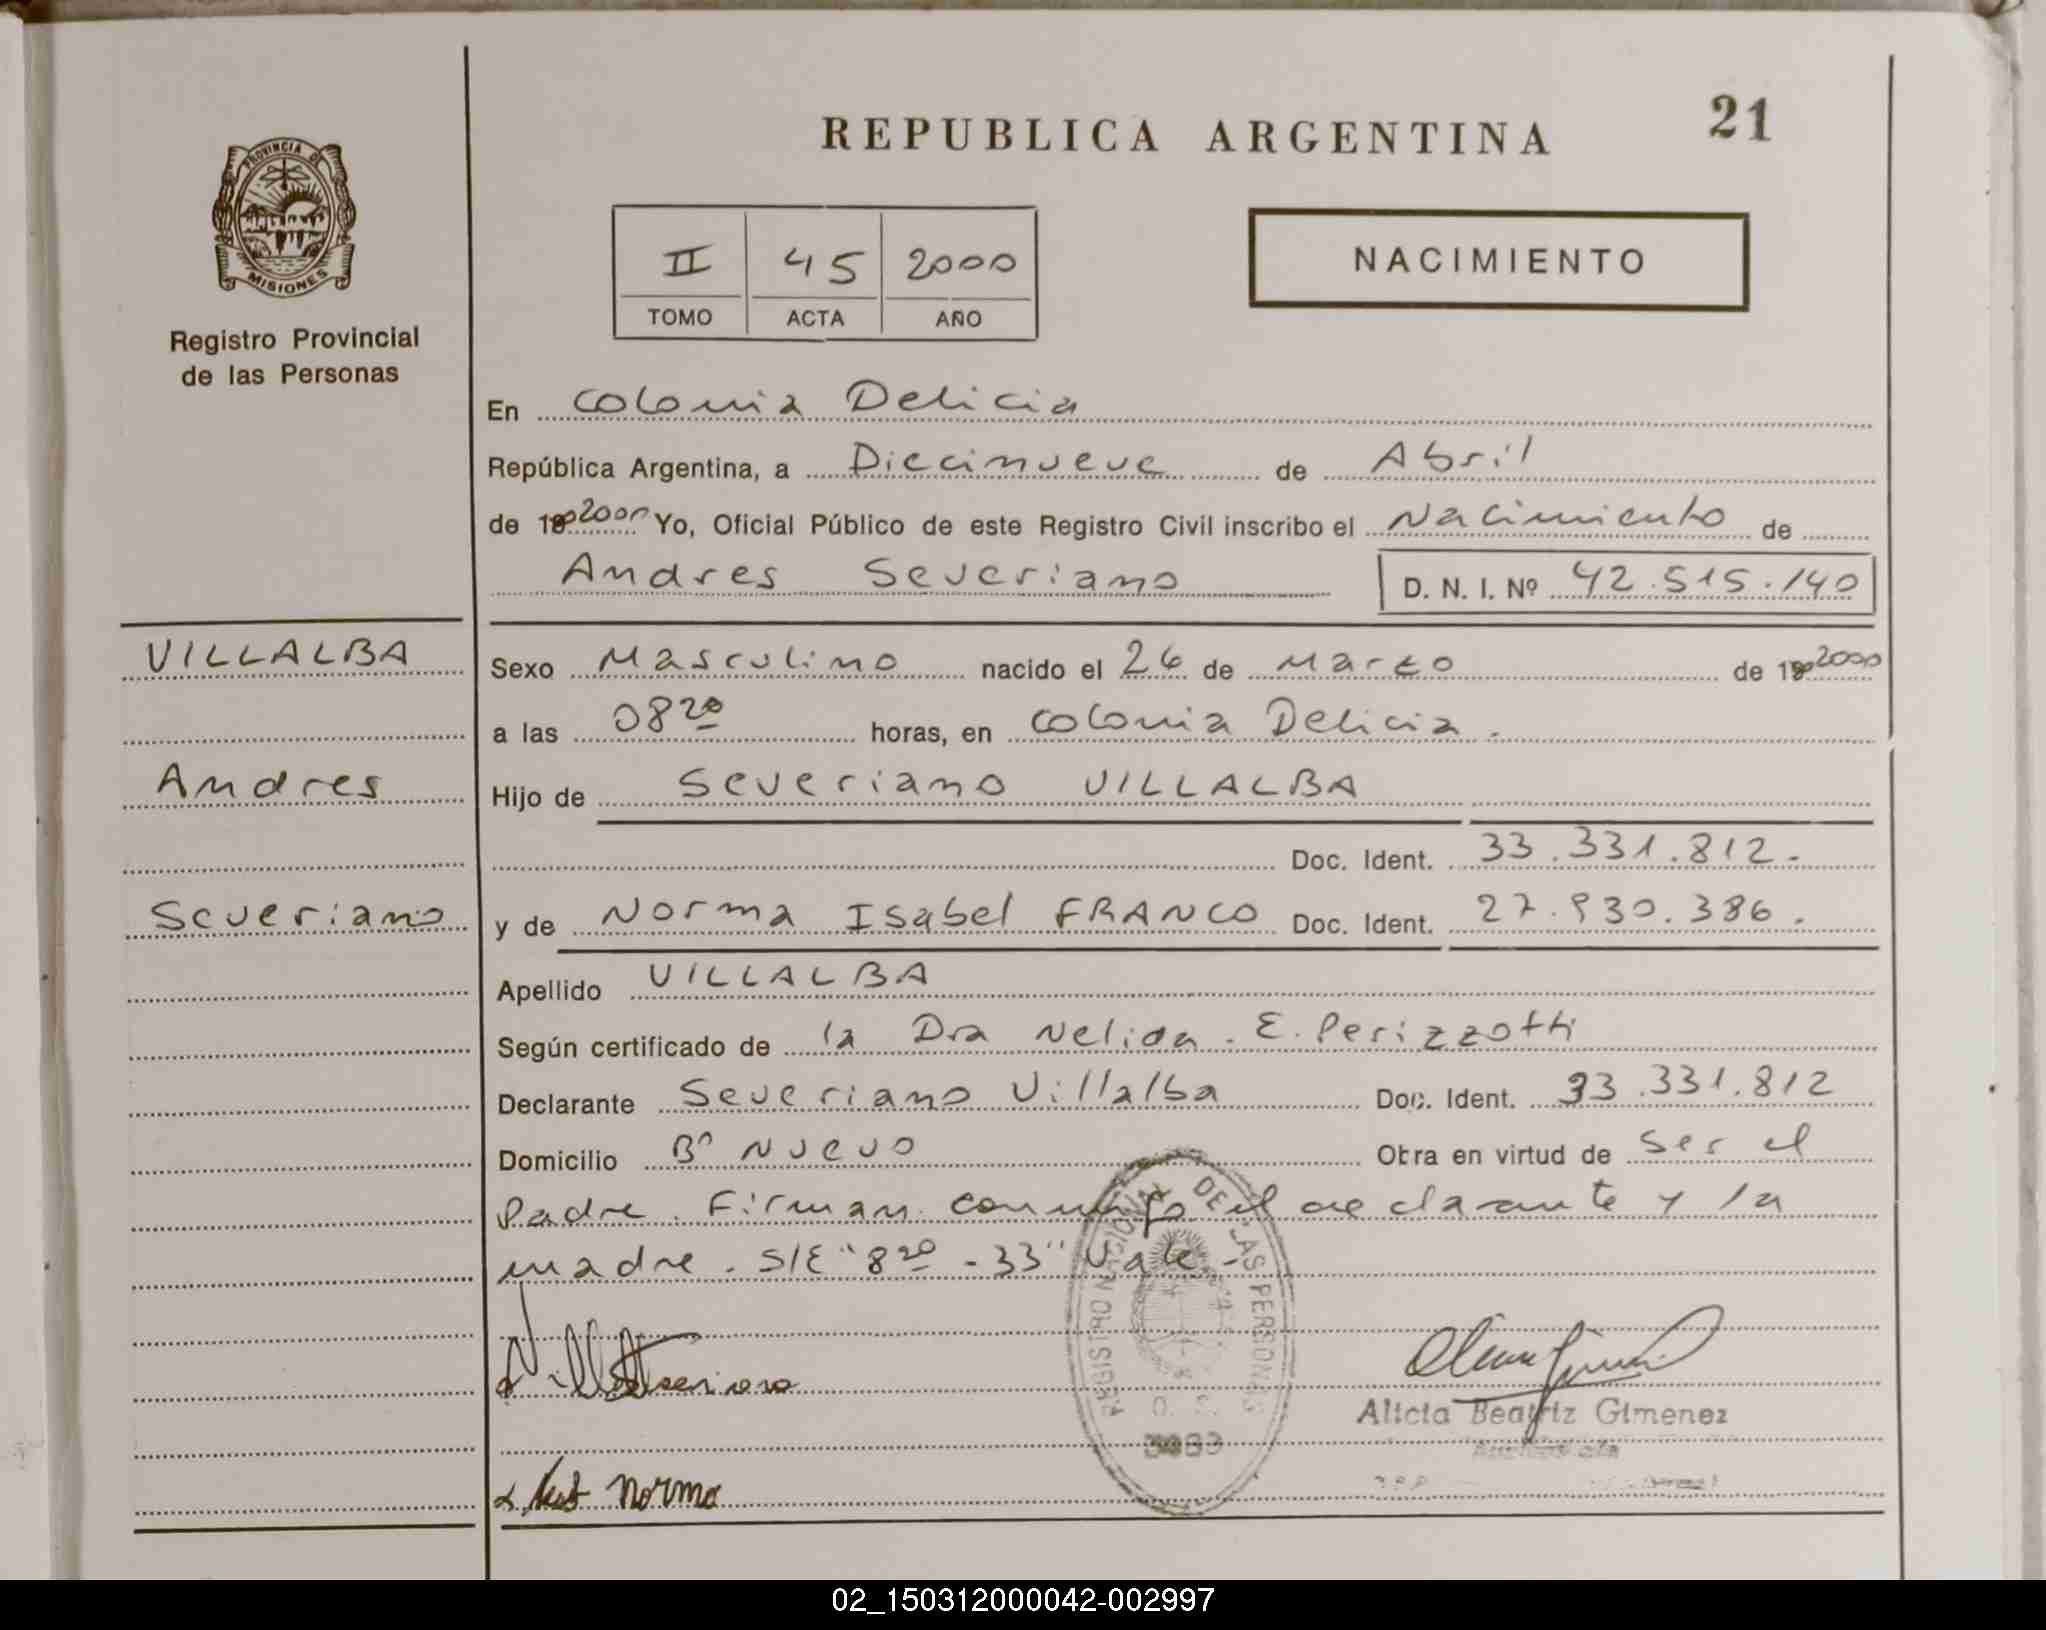 REPUBLICA ARGENTINA
21
PROVINCIA DE
MISIONES
Registro Provincial
de las Personas
II 45 2000
TOMO ACTA AÑO
NACIMIENTO
En Colonia Delicia
República Argentina, a Diecinueve de Abril
de 19 2000 Yo, Oficial Público de este Registro Civil inscribo el Nacimiento de
Andres Severiano D. N. I. Nº 42.515.140
VILLALBA
Andres
Severiano
Sexo Masculino nacido el 26 de Marzo de 19 2000
a las 08 20 horas, en Colonia Delicia.
Hijo de Severiano VILLALBA
Doc. Ident. 33.331.812.
y de Norma Isabel FRANCO Doc. Ident. 27.930.386.
Apellido VILLALBA
Según certificado de la Dra Nelida. E. Perizzotti
Declarante Severiano Villalba Doc. Ident. 33.331.812
Domicilio Bº Nuevo Obra en virtud de Ser el
Padre. Firman conmigo el declarante y la
madre. S/E "8 20 - 33" Vale-
REGISTRO PROVINCIAL DE LAS PERSONAS
Norma
Alicia Beatriz Gimenez
02_150312000042-002997